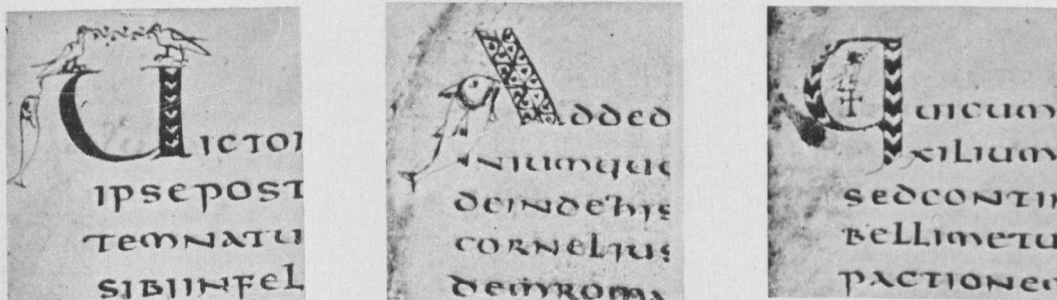 UICTOR
IPSEPOST
TEMNATU
SIBIINFEL
ADDED
INIUMQUE
DEINDEHIS
CORNELIUS
DEMROMA
QUICUM
XILIUM
SEDCONTIN
BELLIMETU
PACTIONE